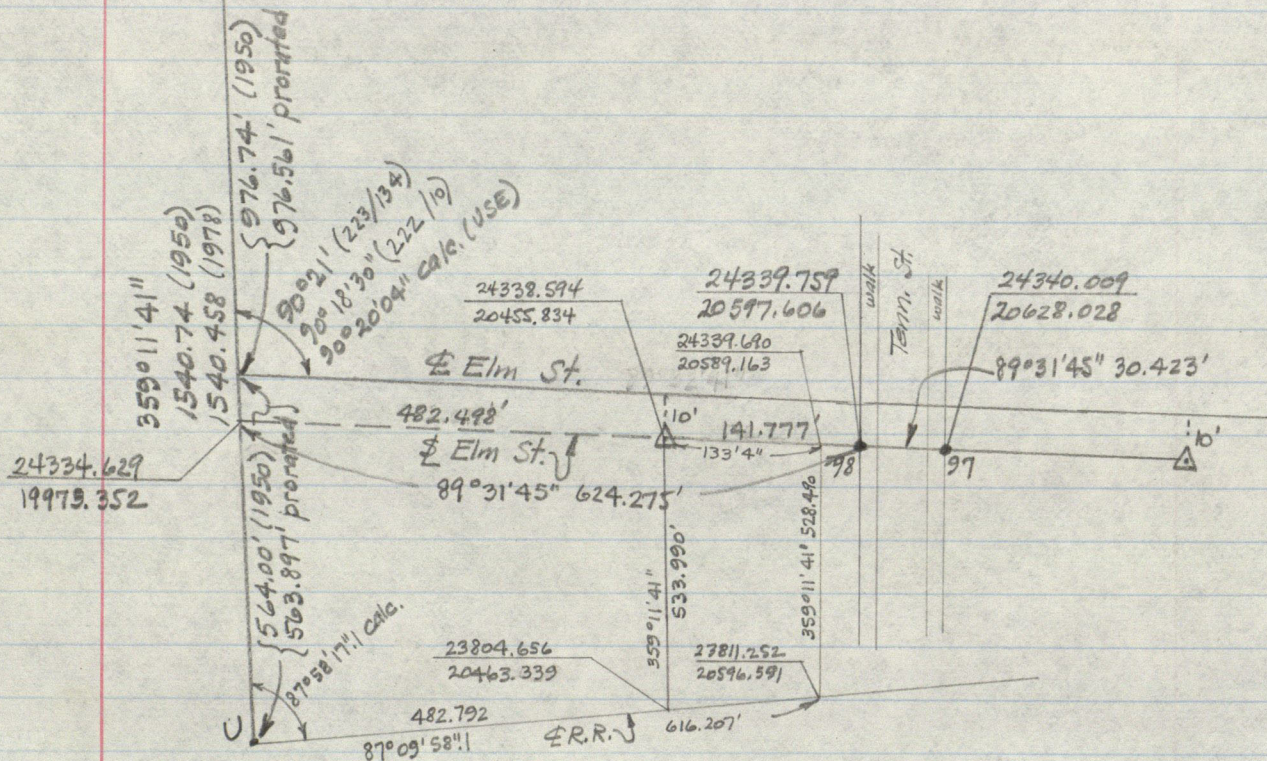 976.74' (1950)
976.561' prorated
359°11'41"
1540.74 (1950)
1540.458 (1978)
90°21' (223/134)
90°18'30" (222/10)
90°20'04" calc. (USE)
24338.594
20455.834
24339.759
20597.606
24339.690
20589.163
walk
Term. St.
walk
24340.009
20628.028
89°31'45" 30.423'
℄ Elm St.
482.498'
℄ Elm St.
10'
141.777'
133'4"
98
97
10'
24334.629
19973.352
89°31'45" 624.275'
564.00' (1950)
563.897' prorated
87°58'17".1 calc.
359°11'41"
533.990'
359°11'41" 528.496
23804.656
20463.339
23811.252
20596.591
C
482.792
87°09'58".1
℄ R.R.
616.207'